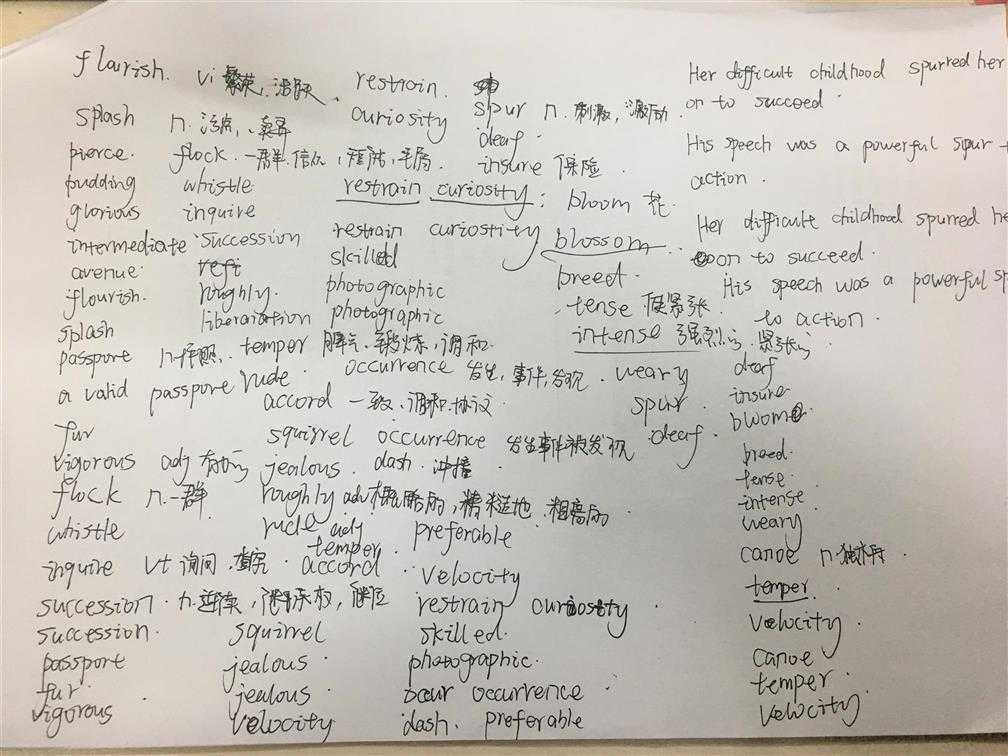 flourish. vi 繁荣、活跃、 restrain.
splash n. 污点, curiosity spur n. 刺激, 激励
pierce. flock. 一群. 信众, 毛屑 deaf
pudding whistle restrain curiosity: insure 保险
glorious inquire restrain curiostity bloom 花
intermediate succession skilled blossom
avenue roughly. photographic breed.
flourish. liberaiation photographic tense 使紧张
splash temper 脾气、锻炼, 调和 intense 强烈的、紧张的
passpore n. occurrence 发生, 事件, 发现. weary
a valid passpore rude. accord 一致、调和. 协议 spur.
fur squirrel occurrence 发生事件被发现 deaf.
vigorous adj 有力的 jealous. dash. 冲撞
flock n. 一群 roughly adv 概略的, 粗糙地
whistle rude adj preferable
inquire vt 询问, 查究. temper. accord. velocity
succession. n. 连续, 继承权, 继位 restrain curiosity
succession. squirrel skilled.
passport jealous. photographic.
fur. jealous. occur occurrence
vigorous velocity dash. preferable
Her difficult childhood spurred her
on to succeed.
His speech was a powerful spur
action.
Her difficult childhood spurred he
on to succeed.
His speech was a powerful sp
to action.
deaf
insure
bloom
breed.
tense.
intense
weary
canoe n. 独木舟.
temper.
velocity.
canoe
temper.
velocity